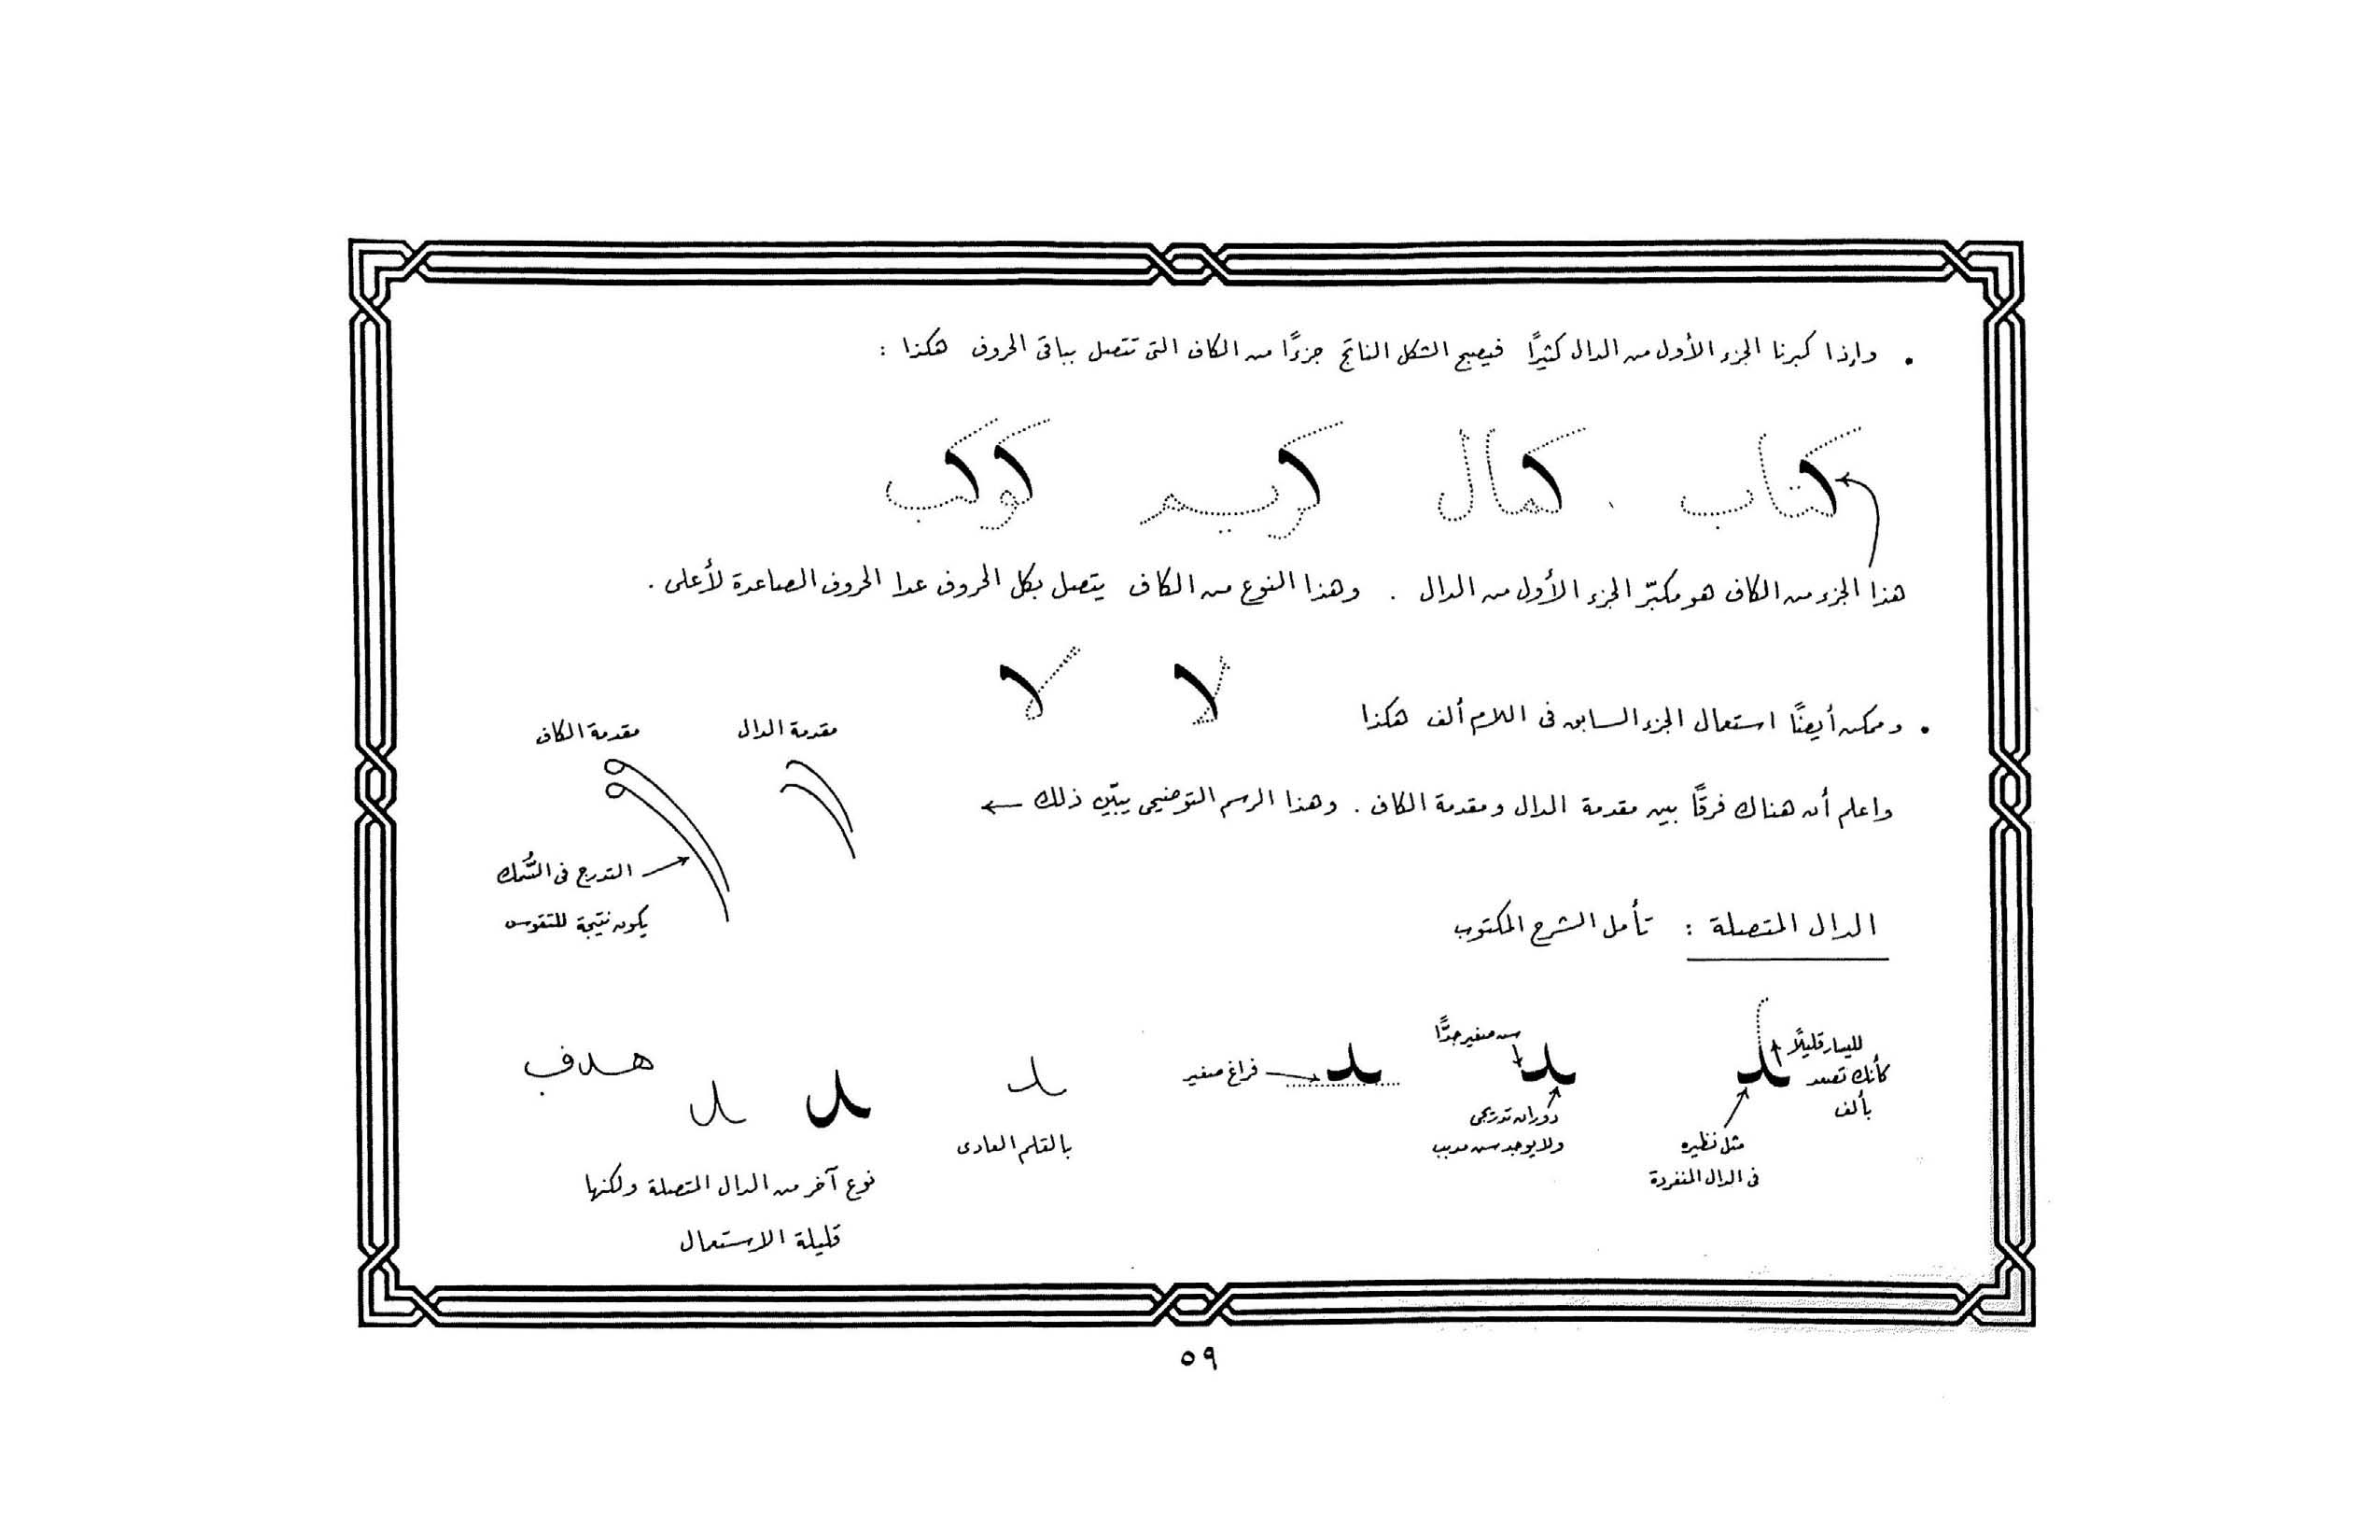 • وإذا كبرنا الجزء الأول من الدال كثيرًا فيصبح الشكل الناتج جزءًا من الكاف التى تتصل بباقى الحروف هكذا :
كتاب كمال كريم كوكب
هذا الجزء من الكاف هو مكبّر الجزء الأول من الدال . وهذا النوع من الكاف يتصل بكل الحروف عدا الحروف الصاعدة لأعلى .
• ويمكن أيضًا استعمال الجزء السابق فى اللام ألف هكذا لا لا
مقدمة الدال مقدمة الكاف
واعلم أن هناك فرقًا بين مقدمة الدال ومقدمة الكاف . وهذا الرسم التوضيحى يبيّن ذلك ←
التدرج فى السُّمك
يكون نتيجة للتقوس
الدال المتصلة : تأمل الشرح المكتوب
لليسار قليلاً
كأنك تصعد
بألف
مثل نظيره
فى الدال المنفردة
سن صغير جدًّا
دوران تدريجى
ولا يوجد سن مدبب
فراغ صغير
بالقلم العادى
هدف
نوع آخر من الدال المتصلة ولكنها
قليلة الاستعمال
٥٩